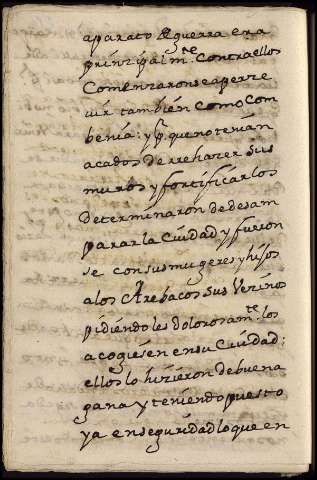 aparato de guerra era
prinzipalm.te Contra ellos
Comenzaronse a perze
vir tambien Como Com
benia: y p.r que no tenian
acabados de rrehazer sus
muros y fortificarlos
Determinaron de desam
parar la Ciudad y fueron
se con sus mugeres y hijos
a los Arebacos Sus Vezinos
pidiendoles dolorosam.te los
acogiesen en su Ciudad:
ellos lo hizieron de buena
gana y teniendo puesto
ya en seguridad lo que en